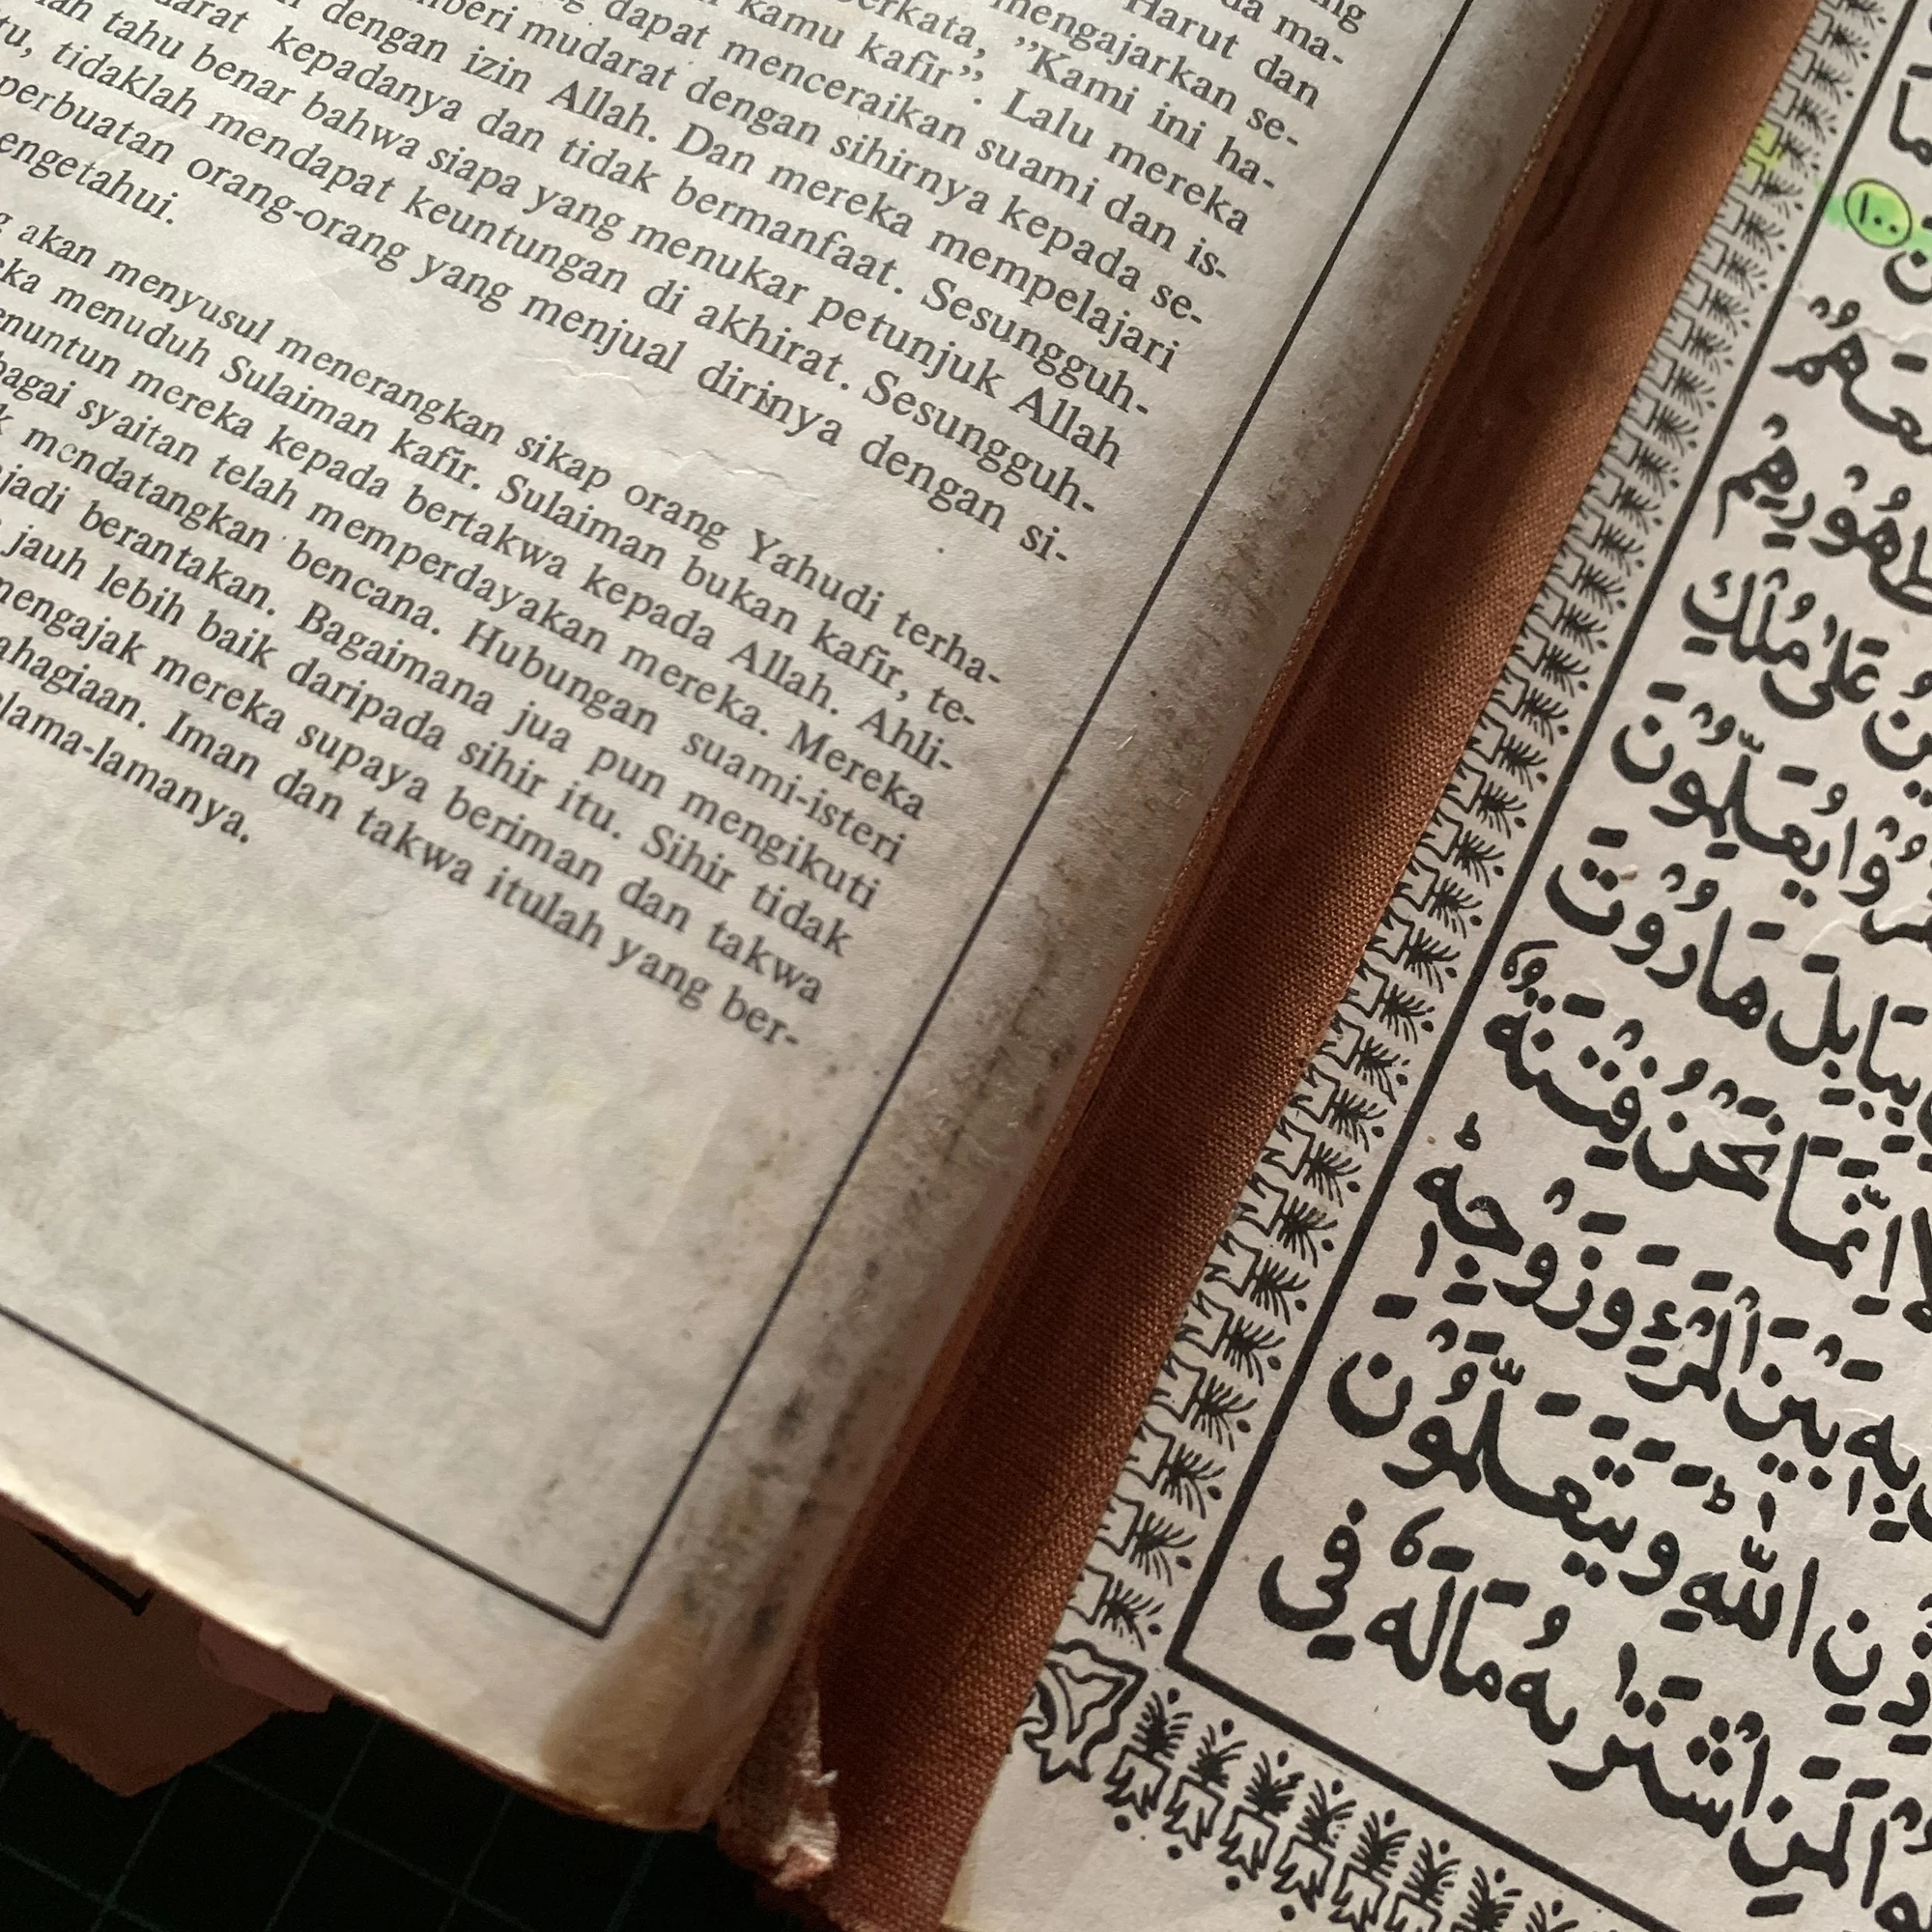 ng
da ma-
Harut dan
mengajarkan se-
berkata, ”Kami ini ha-
kamu kafir”. Lalu mereka
dapat menceraikan suami dan is-
mudarat dengan sihirnya kepada se-
dengan izin Allah. Dan mereka mempelajari
kepadanya dan tidak bermanfaat. Sesungguh-
tahu benar bahwa siapa yang menukar petunjuk Allah
tidaklah mendapat keuntungan di akhirat. Sesungguh-
perbuatan orang-orang yang menjual dirinya dengan si-
engetahui.
akan menyusul menerangkan sikap orang Yahudi terha-
menuduh Sulaiman kafir. Sulaiman bukan kafir, te-
enuntun mereka kepada bertakwa kepada Allah. Ahli-
bagai syaitan telah memperdayakan mereka. Mereka
mendatangkan bencana. Hubungan suami-isteri
jadi berantakan. Bagaimana jua pun mengikuti
jauh lebih baik daripada sihir itu. Sihir tidak
mengajak mereka supaya beriman dan takwa
ahagiaan. Iman dan takwa itulah yang ber-
lama-lamanya.
١٠٠
عَلٰى مُلْكِ
يُعَلِّمُوْنَ
بِبَابِلَ هَارُوْتَ
اِنَّمَا نَحْنُ فِتْنَةٌ
بِهٖ بَيْنَ الْمَرْءِ وَزَوْجِهٖ
اللّٰهِ وَيَتَعَلَّمُوْنَ
لَمَنِ اشْتَرٰىهُ مَا لَهٗ فِى